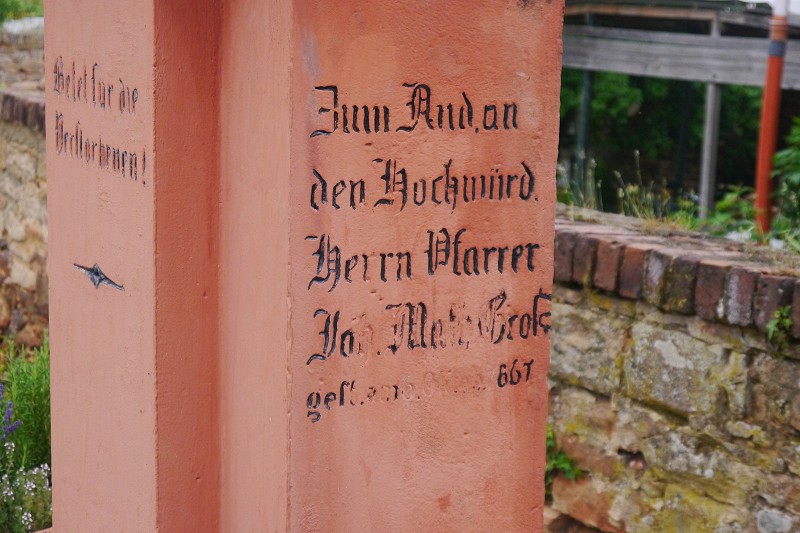 Betet für die
Verstorbenen!
Zum And. an
den Hochwürd.
Herrn Pfarrer
Joh. Groß
gest.